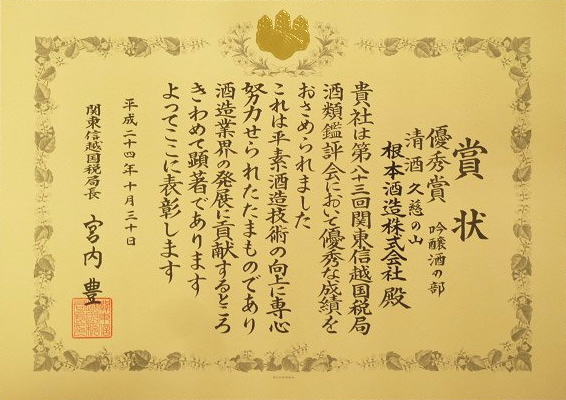 賞状
優秀賞 吟醸酒の部
清酒 久慈の山
根本酒造株式会社殿
貴社は第八十三回関東信越国税局
酒類鑑評会において優秀な成績を
おさめられました
これは平素酒造技術の向上に専心
努力せられたたまものであり
酒造業界の発展に貢献するところ
きわめて顕著であります
よってここに表彰します
平成二十四年十月三十日
関東信越国税局長 宮内豊